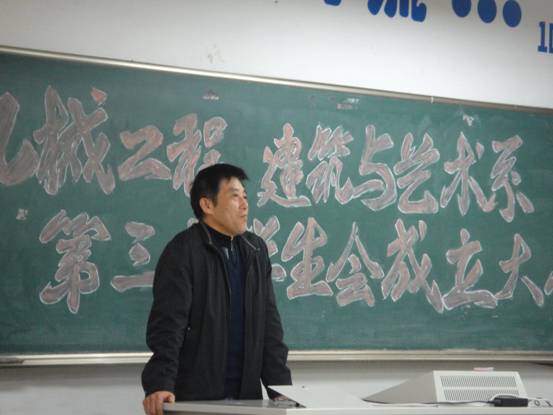 机械工程 建筑与艺术系
第三 学生会成立大